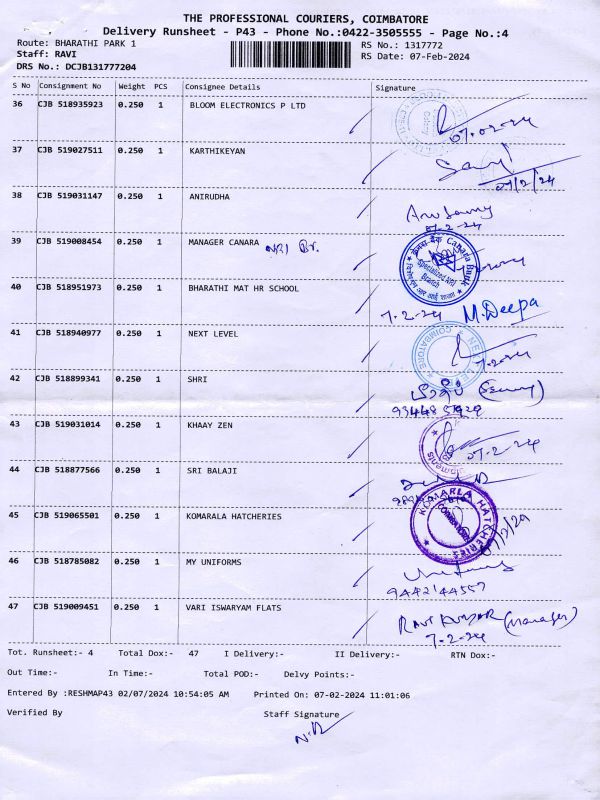 THE PROFESSIONAL COURIERS, COIMBATORE
Delivery Runsheet - P43 - Phone No.:0422-3505555 - Page No.:4
Route: BHARATHI PARK 1 RS No.: 1317772
Staff: RAVI RS Date: 07-Feb-2024
DRS No.: DCJB131777204
S No Consignment No Weight PCS Consignee Details Signature
36 CJB 518935923 0.250 1 BLOOM ELECTRONICS P LTD
07-02-24
37 CJB 519027511 0.250 1 KARTHIKEYAN
07/2/24
38 CJB 519031147 0.250 1 ANIRUDHA
07-2-24
39 CJB 519008454 0.250 1 MANAGER CANARA NRI Br.
Canara Bank
Specialized NRI Branch
40 CJB 518951973 0.250 1 BHARATHI MAT HR SCHOOL
7-2-24 M.Deepa
41 CJB 518940977 0.250 1 NEXT LEVEL
NEXT LEVEL COIMBATORE
7-2-24
42 CJB 518899341 0.250 1 SHRI
43 CJB 519031014 0.250 1 KHAAY ZEN
07-2-24
44 CJB 518877566 0.250 1 SRI BALAJI
45 CJB 519065501 0.250 1 KOMARALA HATCHERIES
KOMARLA HATCHERIES COIMBATORE
46 CJB 518785082 0.250 1 MY UNIFORMS
9442144557
47 CJB 519009451 0.250 1 VARI ISWARYAM FLATS
RAVI KUMAR (Manager)
7-2-24
Tot. Runsheet:- 4 Total Dox:- 47 I Delivery:- II Delivery:- RTN Dox:-
Out Time:- In Time:- Total POD:- Delvy Points:-
Entered By :RESHMAP43 02/07/2024 10:54:05 AM Printed On: 07-02-2024 11:01:06
Verified By Staff Signature